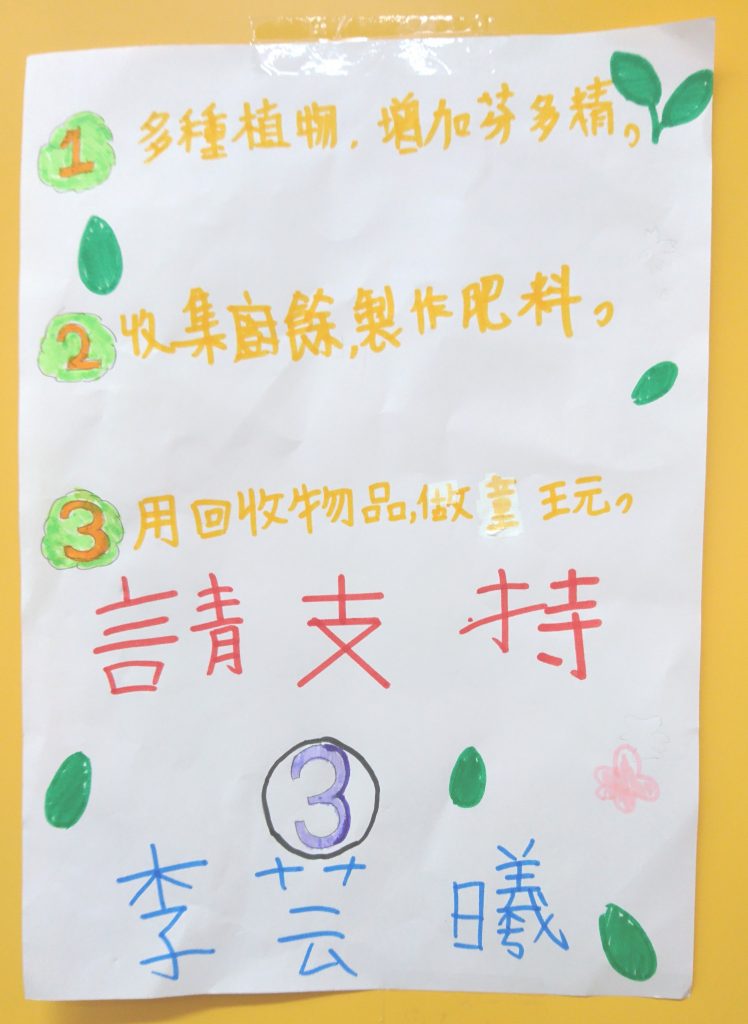 1 多種植物，增加芬多精。
2 收集廚餘,製作肥料。
3 用回收物品,做童玩。
請支持
3
李芸曦